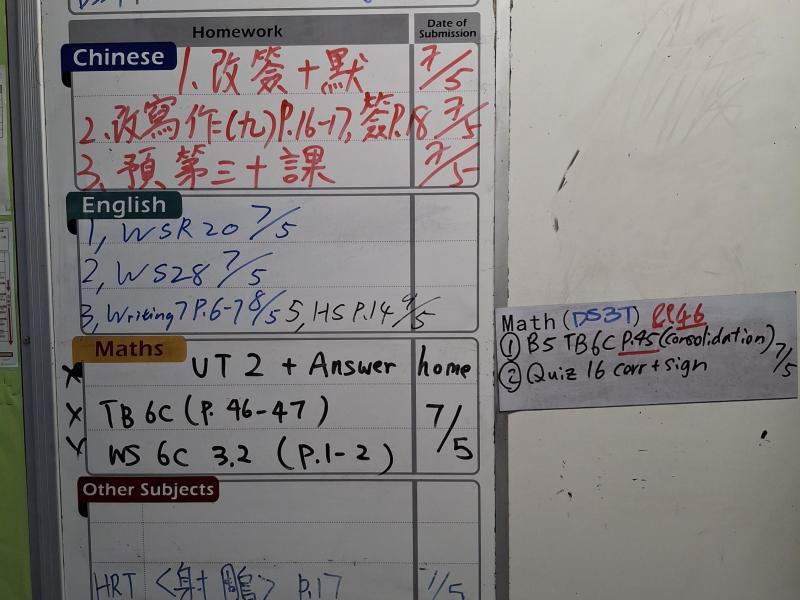 Homework
Date of
Submission
Chinese
1. 改簽+默 7/5
2. 改寫作(九)P.16-17, 簽P.18 7/5
3. 預第三十課 7/5
English
1, WSR20 7/5
2, WS28 7/5
3, Writing7 P.6-7 8/5 5, HS P.14 9/5
Maths
UT 2 + Answer home
TB 6C (P. 46-47) 7/5
WS 6C 3.2 (P.1-2)
Other Subjects
HRT <射鵰> P.17 /5
Math (DS3T) P.46
① B5 TB6C P.45 (Consolidation) 7/5
② Quiz 16 corr + sign